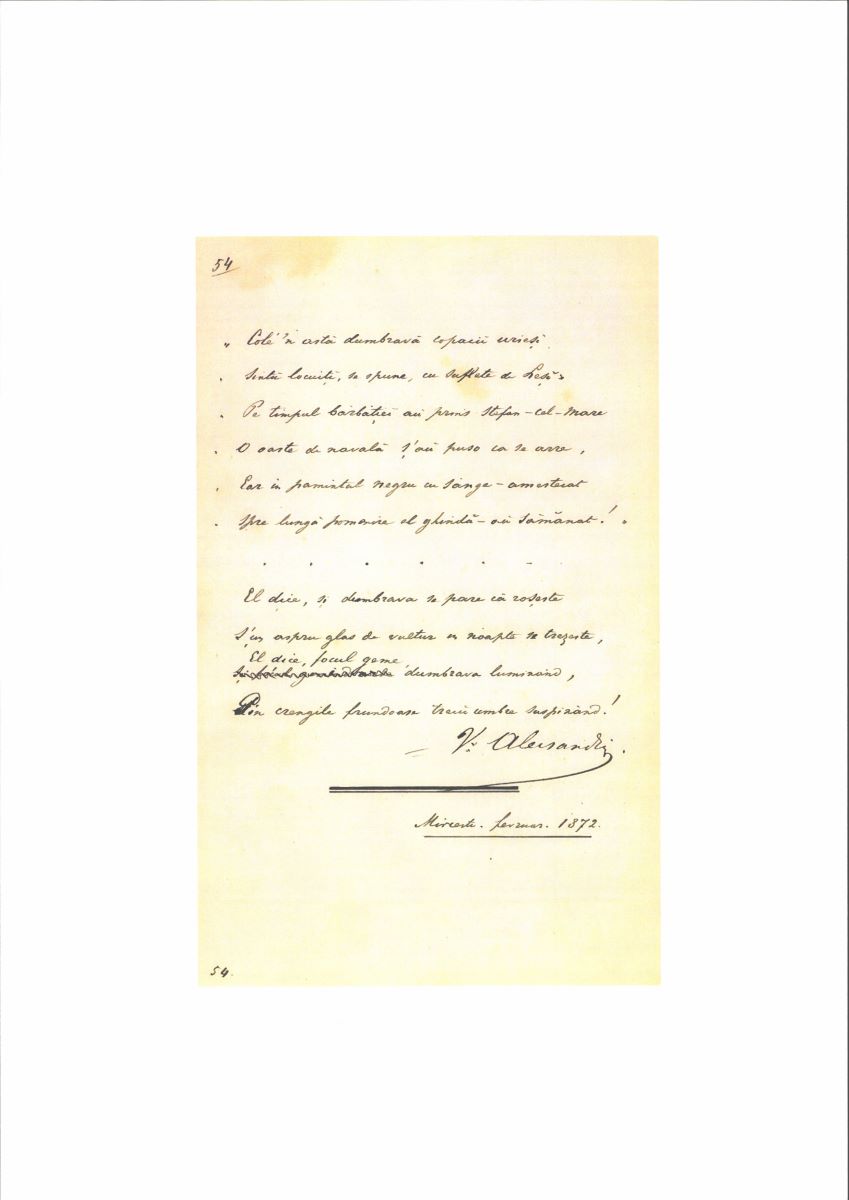 54
„ Colé 'n astă dumbravă copacii urieși
Sintŭ locuiți, se spune, cu suflete de Leși.
Pe timpul bărbăției aŭ prins Stefan-cel-Mare
O oaste de navală ș'aŭ puso ca se arre,
Ear in pamîntul negru cu sânge-amestecat
Spre lungă pomenire el ghindă-aŭ sămănat! „
. . . . . . .
El dice, și dumbrava se pare că roșește
Ș'un aspru glas de vultur in noapte se trezește,
El dice, focul geme
dumbrava luminând,
Pin crengile frundoase trecŭ umbre suspinând!
— V. Alecsandri.
Mircesti. fevruar. 1872.
54.